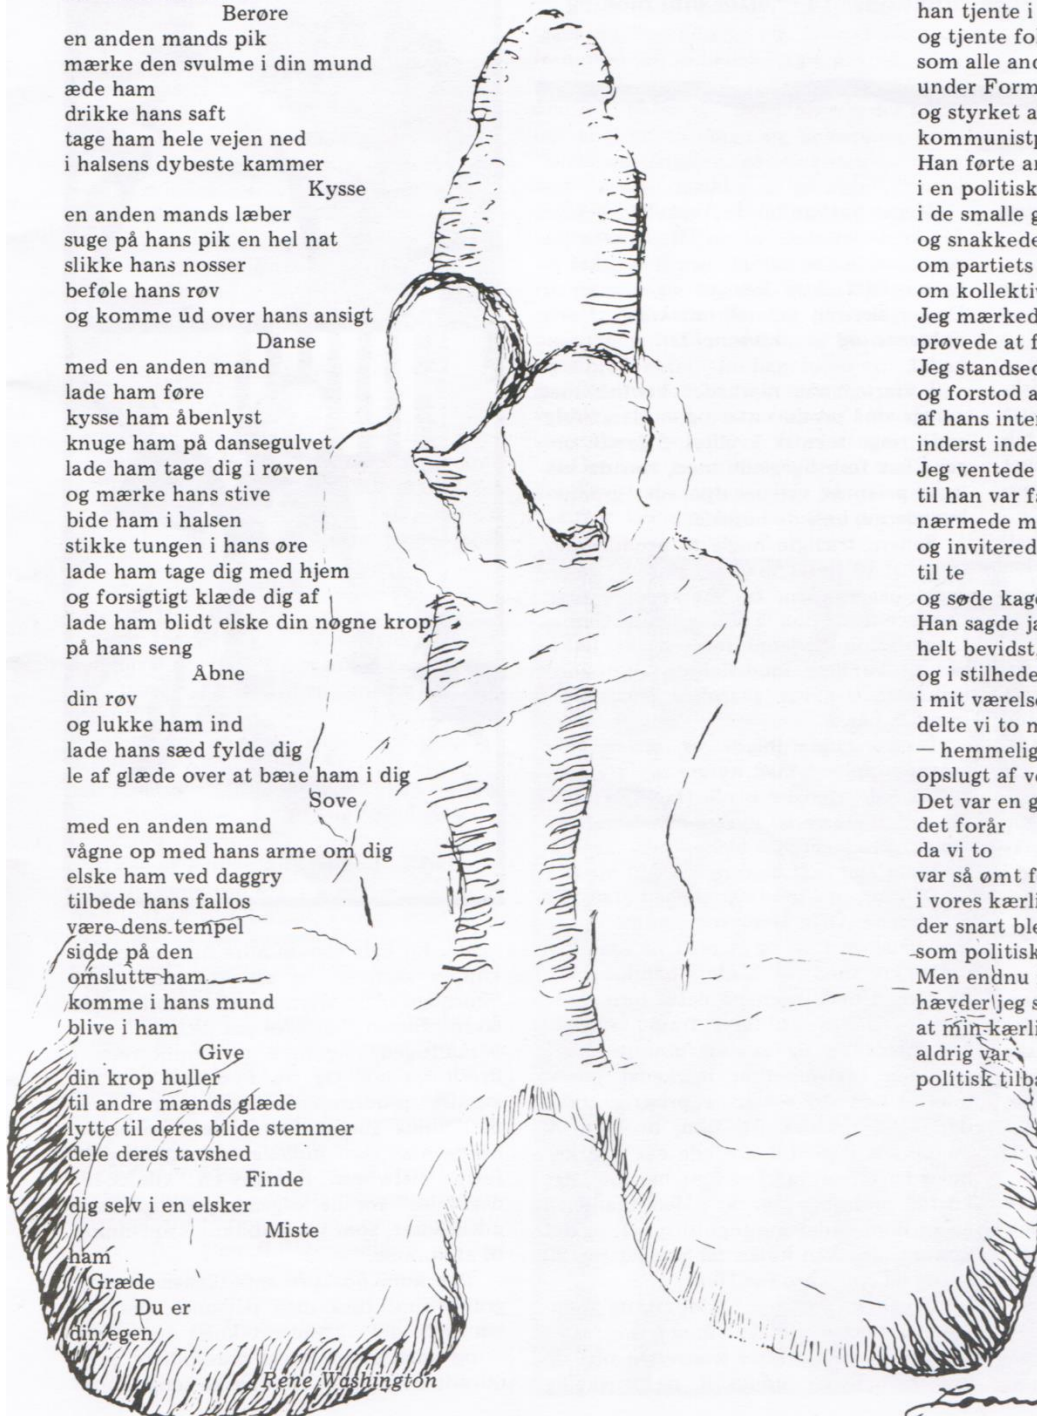 Berøre
en anden mands pik
mærke den svulme i din mund
æde ham
drikke hans saft
tage ham hele vejen ned
i halsens dybeste kammer
Kysse
en anden mands læber
suge på hans pik en hel nat
slikke hans nosser
beføle hans røv
og komme ud over hans ansigt
Danse
med en anden mand
lade ham føre
kysse ham åbenlyst
knuge ham på dansegulvet
lade ham tage dig i røven
og mærke hans stive
bide ham i halsen
stikke tungen i hans øre
lade ham tage dig med hjem
og forsigtigt klæde dig af
lade ham blidt elske din nøgne krop
på hans seng
Åbne
din røv
og lukke ham ind
lade hans sæd fylde dig
le af glæde over at bære ham i dig
Sove
med en anden mand
vågne op med hans arme om dig
elske ham ved daggry
tilbede hans fallos
være dens tempel
sidde på den
omslutte ham
komme i hans mund
blive i ham
Give
din krop huller
til andre mænds glæde
lytte til deres blide stemmer
dele deres tavshed
Finde
dig selv i en elsker
Miste
ham
Græde
Du er
din egen
Rene Washington
han tjente i
og tjente fol
som alle and
under Form
og styrket a
kommunistp
Han førte an
i en politisk
i de smalle g
og snakkede
om partiets
om kollektiv
Jeg mærked
prøvede at f
Jeg standsed
og forstod a
af hans inter
inderst inde
Jeg ventede
til han var fa
nærmede m
og invitered
til te
og søde kage
Han sagde ja
helt bevidst,
og i stilhede
i mit værelse
delte vi to m
— hemmelig
opslugt af vo
Det var en g
det forår
da vi to
var så ømt f
i vores kærli
der snart ble
som politisk
Men endnu
hævder jeg s
at min kærli
aldrig var
politisk tilba